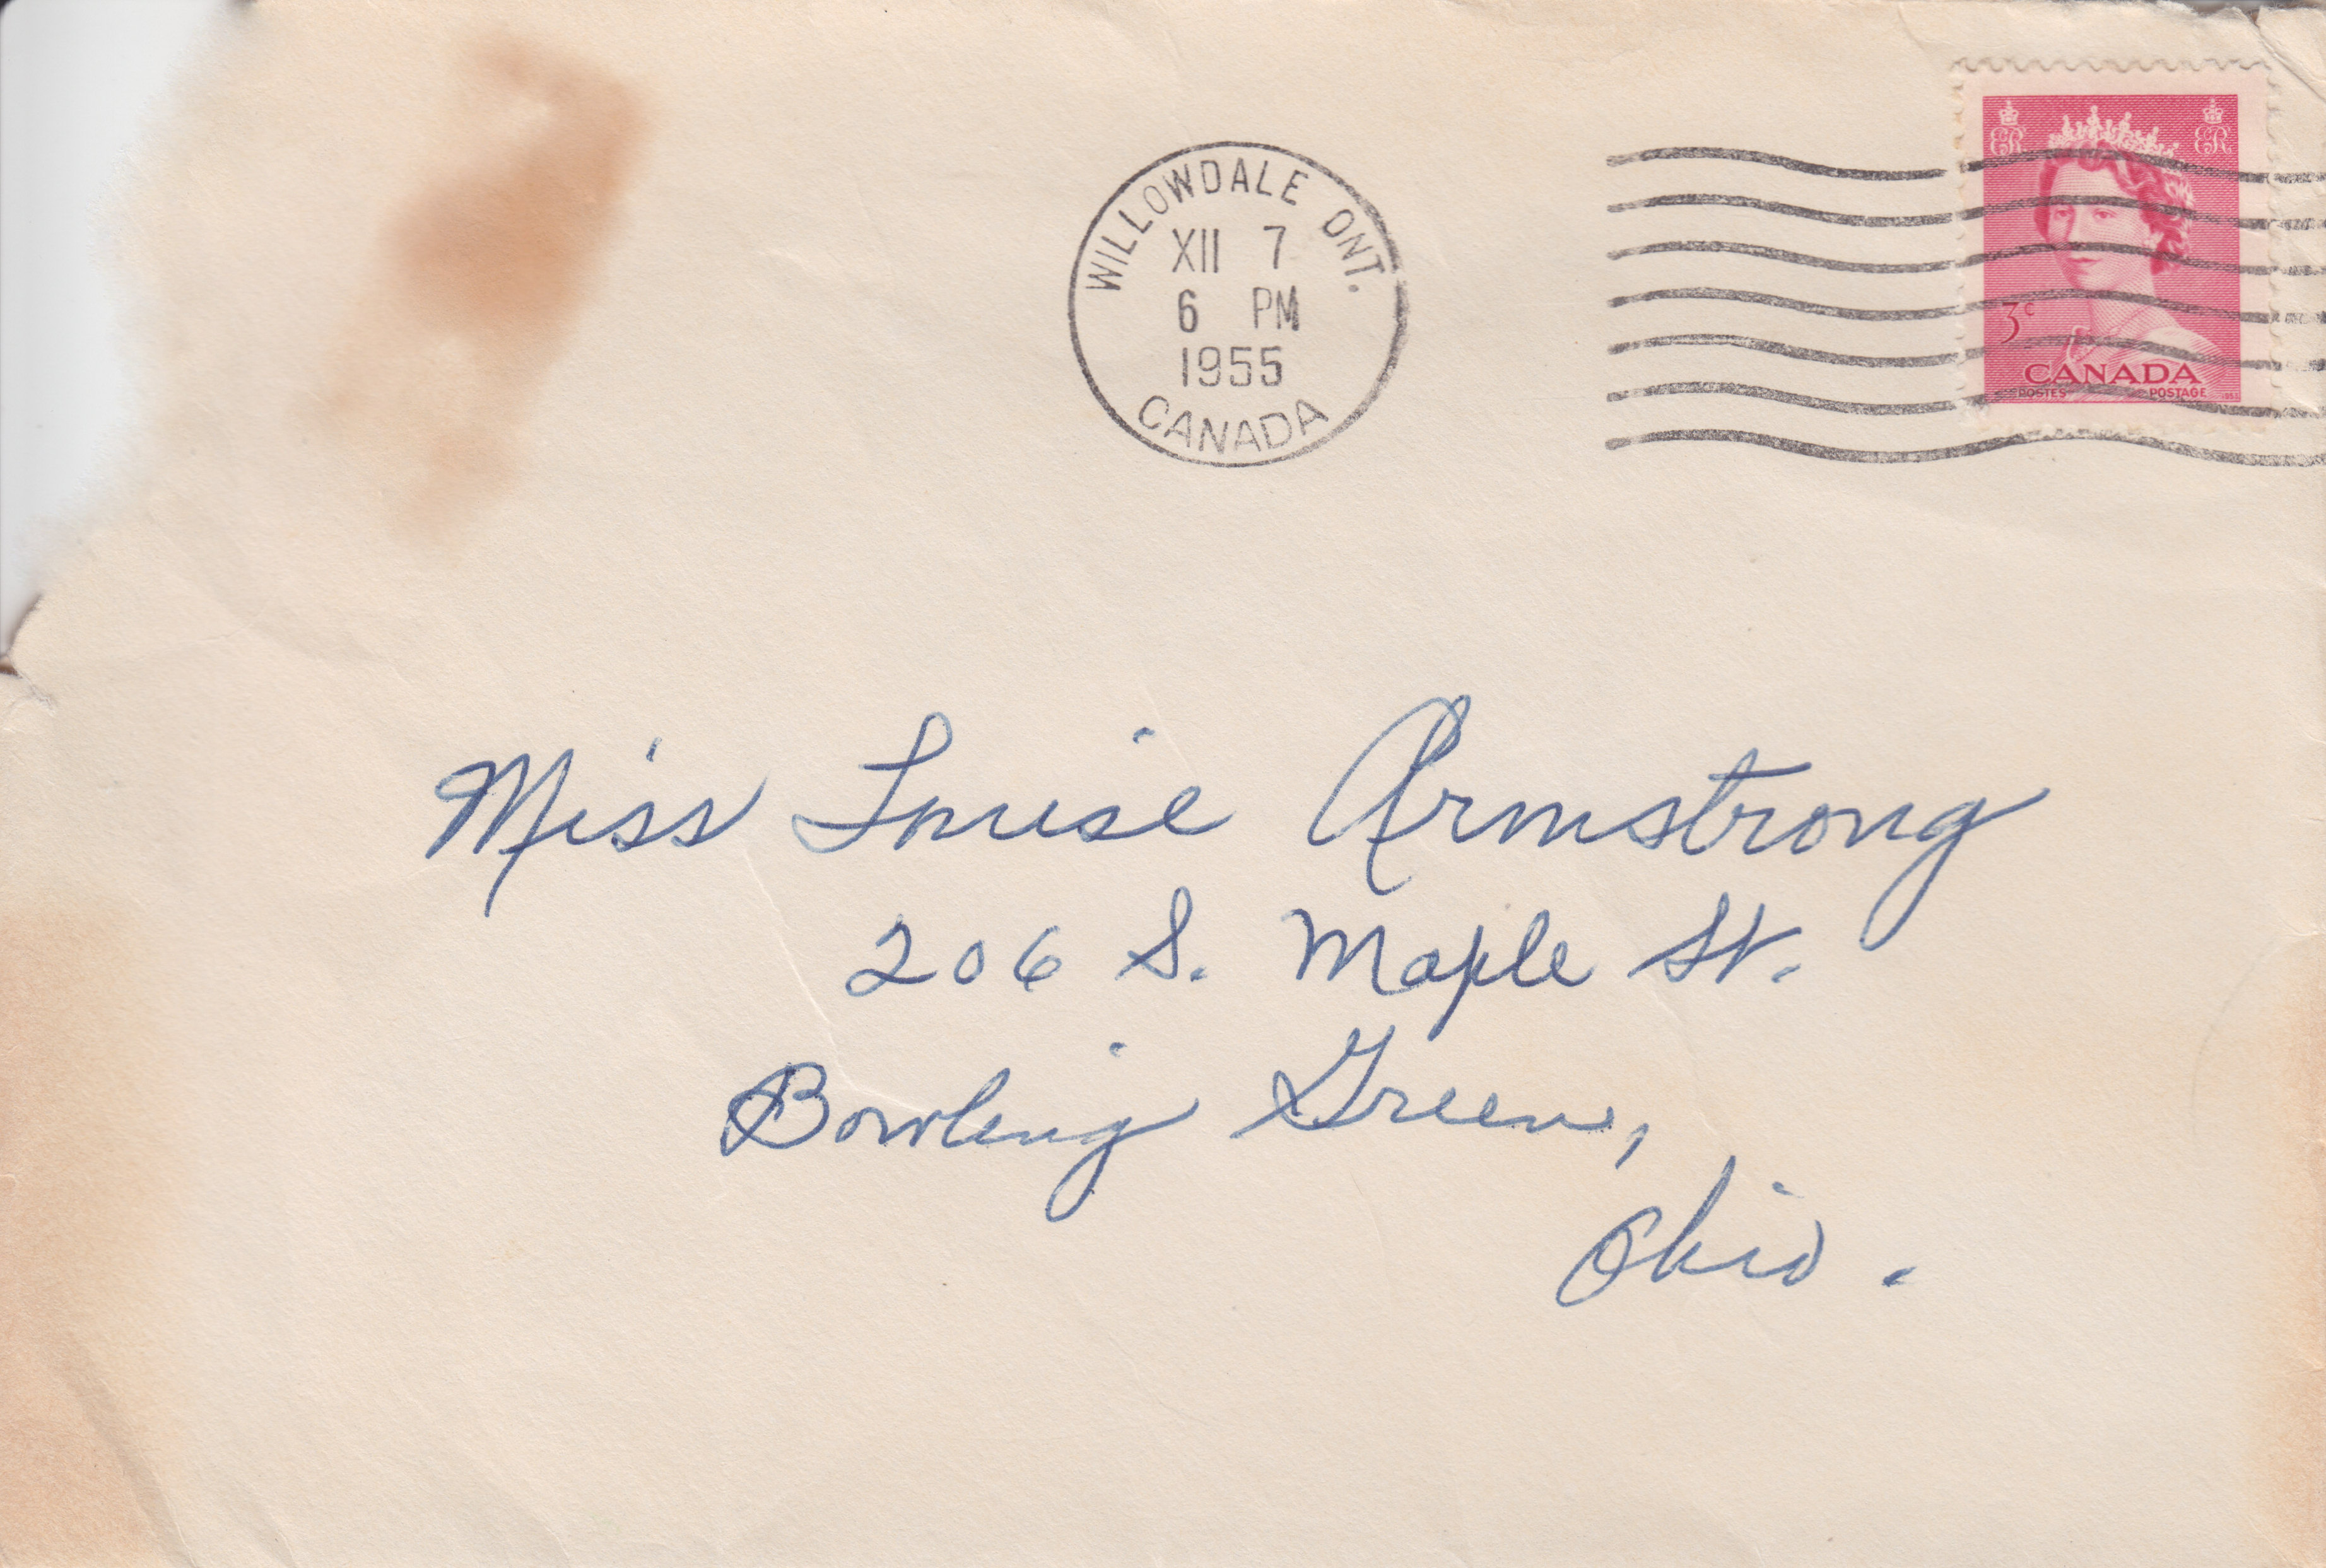 WILLOWDALE ONT.
XII 7
6 PM
1955
CANADA
ER ER
3c
CANADA
POSTES POSTAGE 1953
Miss Louise Armstrong
206 S. Maple St.
Bowling Green,
Ohio.